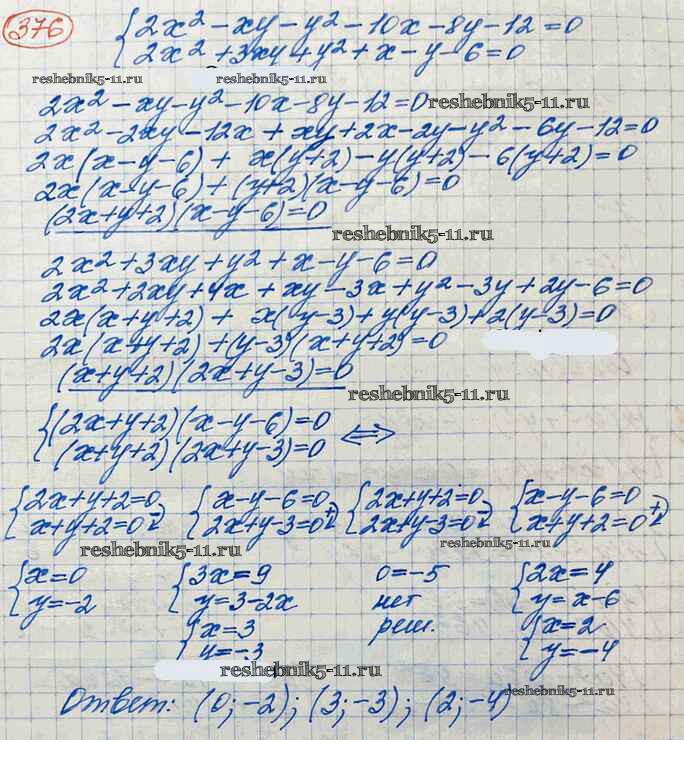 376 { 2x² - xy - y² - 10x - 8y - 12 = 0
2x² + 3xy + y² + x - y - 6 = 0
reshebnik5-11.ru reshebnik5-11.ru
2x² - xy - y² - 10x - 8y - 12 = 0 reshebnik5-11.ru
2x² - 2xy - 12x + xy + 2x - 2y - y² - 6y - 12 = 0
2x(x - y - 6) + x(y + 2) - y(y + 2) - 6(y + 2) = 0
2x(x - y - 6) + (y + 2)(x - y - 6) = 0
(2x + y + 2)(x - y - 6) = 0
reshebnik5-11.ru
2x² + 3xy + y² + x - y - 6 = 0
2x² + 2xy + 4x + xy - 3x + y² - 3y + 2y - 6 = 0
2x(x + y + 2) + x(y - 3) + y(y - 3) + 2(y - 3) = 0
2x(x + y + 2) + (y - 3)(x + y + 2) = 0
(x + y + 2)(2x + y - 3) = 0
reshebnik5-11.ru
{ (2x + y + 2)(x - y - 6) = 0
(x + y + 2)(2x + y - 3) = 0 <=>
{ 2x + y + 2 = 0 { x - y - 6 = 0 { 2x + y + 2 = 0 { x - y - 6 = 0
x + y + 2 = 0 - 2x + y - 3 = 0 + 2x + y - 3 = 0 - x + y + 2 = 0 +
reshebnik5-11.ru reshebnik5-11.ru
{ x = 0 { 3x = 9 0 = -5 { 2x = 4
y = -2 y = 3 - 2x нет y = x - 6
{ x = 3 реш. { x = 2
y = -3 y = -4
reshebnik5-11.ru
reshebnik5-11.ru
Ответ: (0; -2); (3; -3); (2; -4)